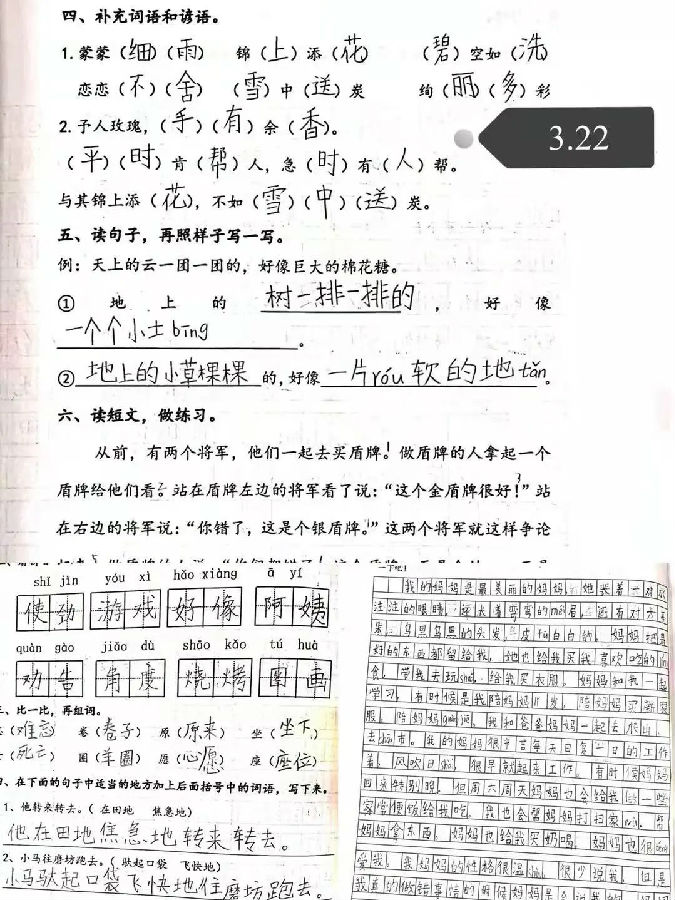 四、补充词语和谚语。
1.蒙蒙（细）（雨） 锦（上）添（花） （碧）空如（洗）
恋恋（不）（舍） （雪）中（送）炭 绚（丽）（多）彩
2.予人玫瑰，（手）（有）余（香）。
3.22
（平）（时）肯（帮）人，急（时）有（人）帮。
与其锦上添（花），不如（雪）（中）（送）炭。
五、读句子，再照样子写一写。
例：天上的云一团一团的，好像巨大的棉花糖。
① 地上的 树一排一排的，好像
一个个小士bīng。
② 地上的小草棵棵的，好像一片róu软的地tǎn。
六、读短文，做练习。
从前，有两个将军，他们一起去买盾牌。做盾牌的人拿起一个
盾牌给他们看。站在盾牌左边的将军看了说：“这个金盾牌很好！”站
在右边的将军说：“你错了，这是个银盾牌。”这两个将军就这样争论
shǐ jìn yóu xì hǎo xiàng ā yí
使劲 游戏 好像 阿姨
quàn gào jiǎo dù shāo kǎo tú huà
劝告 角度 烧烤 图画
三、比一比，再组词。
（难忘） 卷（卷子） 原（原来） 坐（坐下）
（死亡） 圈（羊圈） 愿（心愿） 座（座位）
四、在下面的句子中适当的地方加上后面括号中的词语，写下来。
1、他转来转去。（在田地 焦急地）
他在田地焦急地转来转去。
2、小马往磨坊跑去。（驮起口袋 飞快地）
小马驮起口袋飞快地往磨坊跑去。
一下吧！
我的妈妈是最美丽的妈妈，她长着一对
汪汪的眼睛，
乌黑乌黑的头发，皮怕白白的，妈妈把最
好的东西都留给我，她也给我买我喜欢吃的
食，带我去玩，给我买衣服，妈妈和我一起
学习，有时候是我陪妈妈，陪妈妈买新衣
服，陪妈妈，我和爸爸妈妈一起去爬山，
去市。我的妈妈很辛苦每天日复一日的工作
着，风吹日，很早就起来工作。有时候妈妈
回来特别晚，但周六周天妈妈也会给我做一些
家常便饭给我吃。我也会帮妈妈打扫家，帮
妈妈拿东西，妈妈也给我买奶喝，妈妈也很
爱我！我妈妈的性格很温，很少说我，但是
我真的做错事情的时候妈妈